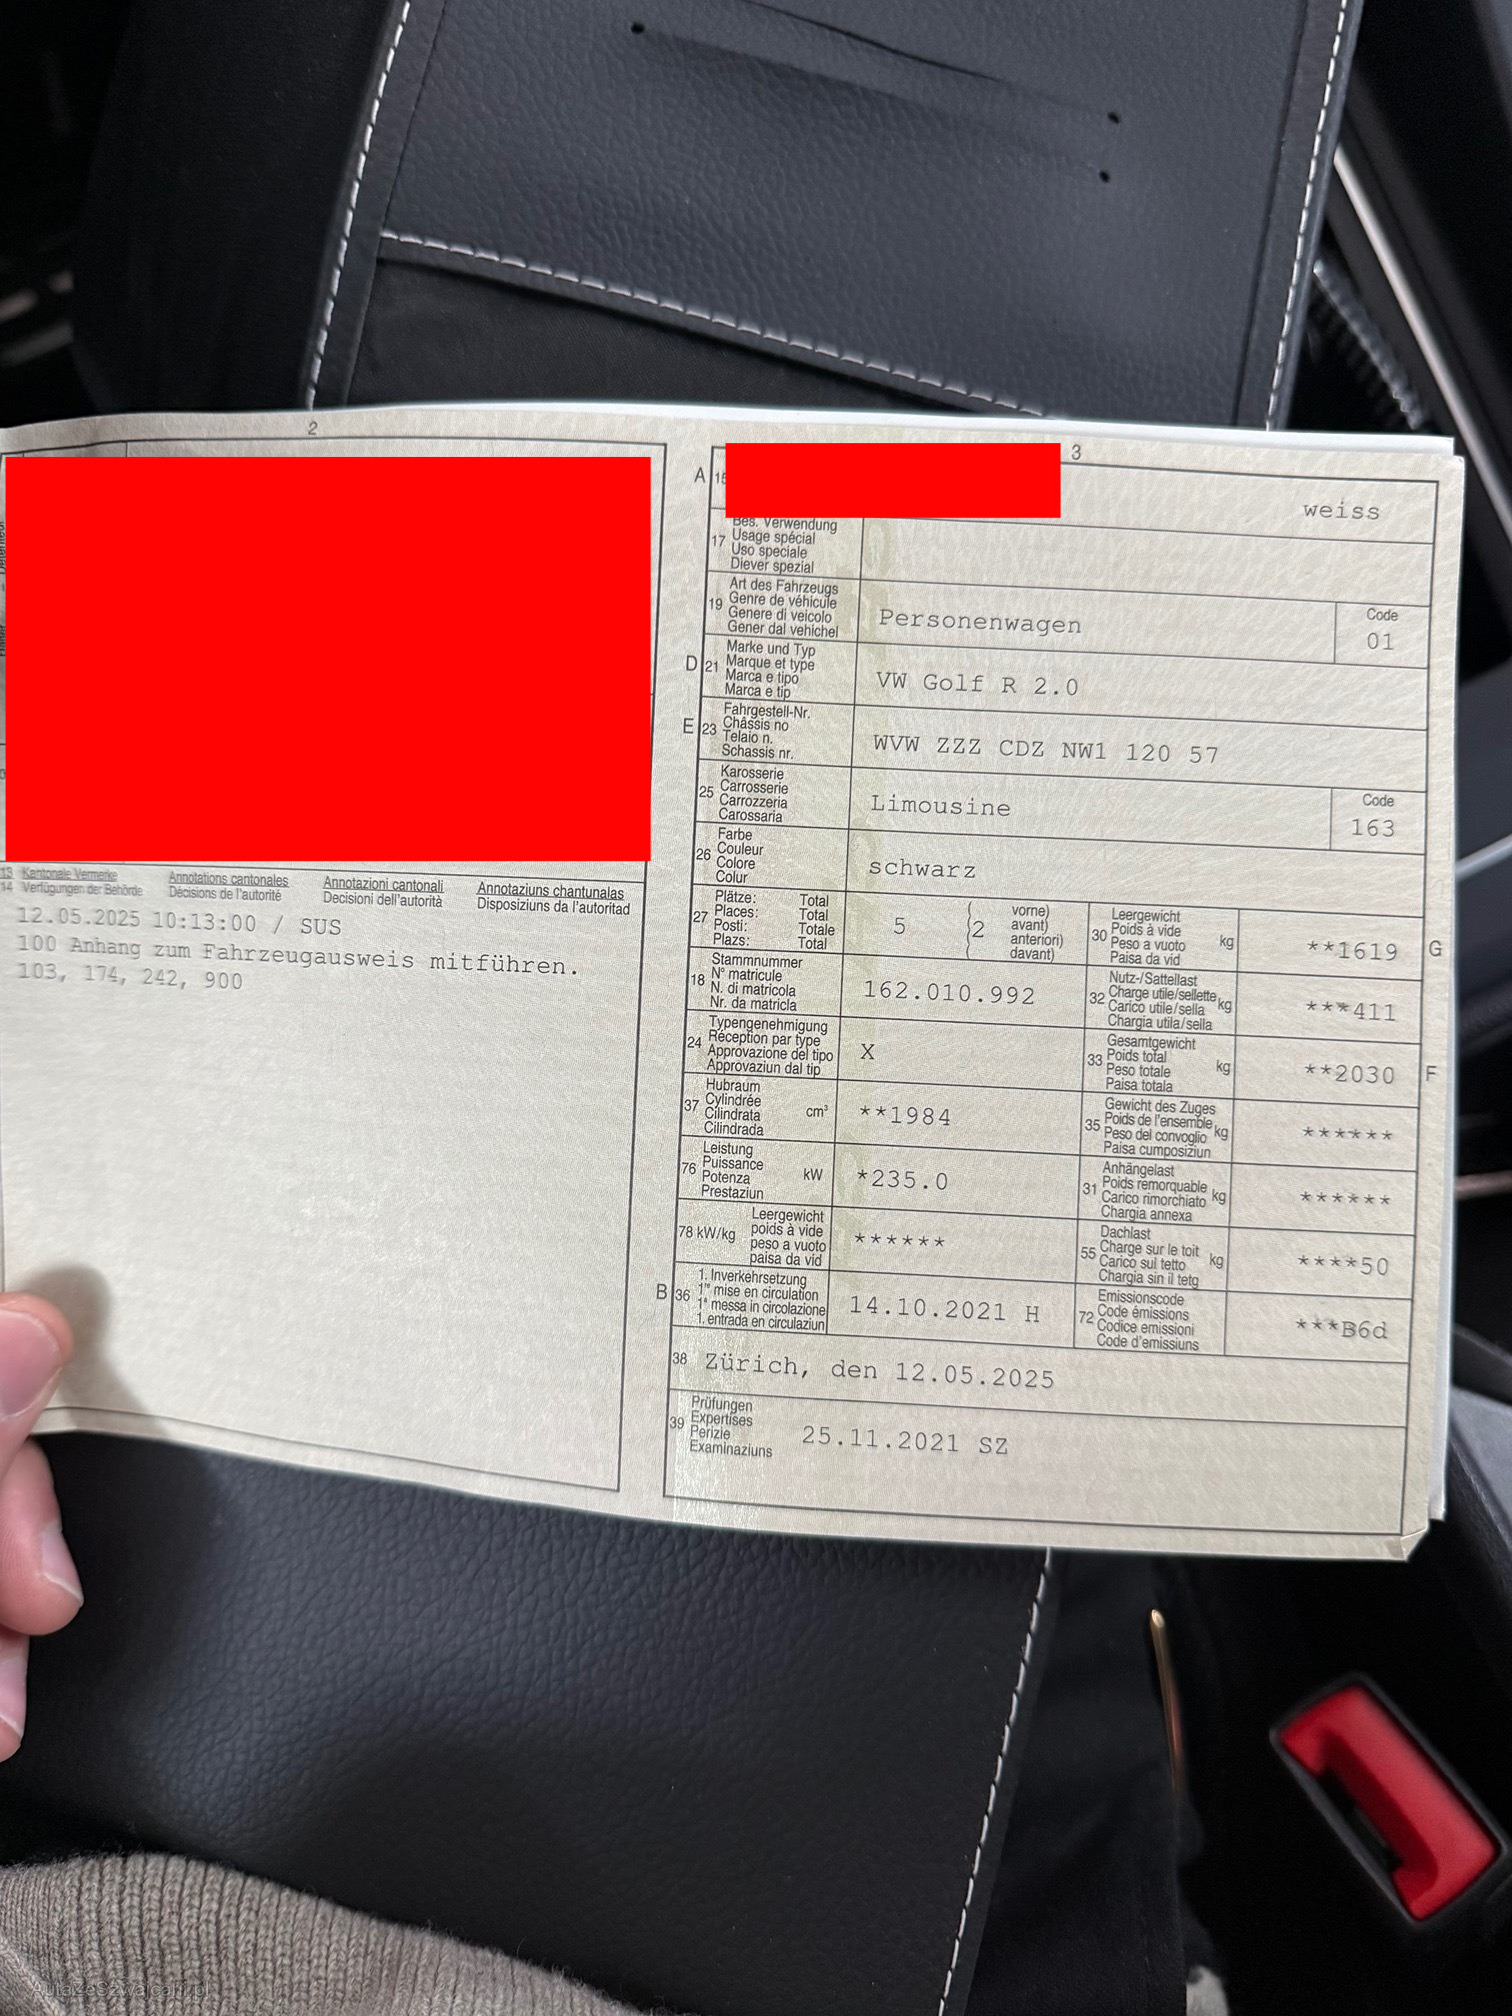 2
13 Kantonale Vermerke Annotations cantonales Annotazioni cantonali Annotaziuns chantunalas
14 Verfügungen der Behörde Décisions de l'autorité Decisioni dell'autorità Disposiziuns da l'autoritad
12.05.2025 10:13:00 / SUS
100 Anhang zum Fahrzeugausweis mitführen.
103, 174, 242, 900
3
A
weiss
17 Bes. Verwendung
Usage spécial
Uso speciale
Diever spezial
19 Art des Fahrzeugs
Genre de véhicule
Genere di veicolo
Gener dal vehichel
Personenwagen
Code
01
D 21 Marke und Typ
Marque et type
Marca e tipo
Marca e tip
VW Golf R 2.0
E 23 Fahrgestell-Nr.
Châssis no
Telaio n.
Schassis nr.
WVW ZZZ CDZ NW1 120 57
25 Karosserie
Carrosserie
Carrozzeria
Carossaria
Limousine
Code
163
26 Farbe
Couleur
Colore
Colur
schwarz
27 Plätze: Total
Places: Total
Posti: Totale
Plazs: Total
5 (2 vorne)
avant)
anteriori)
davant)
30 Leergewicht
Poids à vide
Peso a vuoto kg
Paisa da vid
**1619 G
18 Stammnummer
N° matricule
N. di matricola
Nr. da matricla
162.010.992
32 Nutz-/Sattellast
Charge utile/sellette kg
Carico utile/sella
Chargia utila/sella
***411
24 Typengenehmigung
Réception par type
Approvazione del tipo
Approvaziun dal tip
X
33 Gesamtgewicht
Poids total kg
Peso totale
Paisa totala
**2030 F
37 Hubraum
Cylindrée
Cilindrata cm³
Cilindrada
**1984
35 Gewicht des Zuges
Poids de l'ensemble kg
Peso del convoglio
Paisa cumposiziun
******
76 Leistung
Puissance kW
Potenza
Prestaziun
*235.0
31 Anhängelast
Poids remorquable kg
Carico rimorchiato
Chargia annexa
******
78 kW/kg Leergewicht
poids à vide
peso a vuoto
paisa da vid
******
55 Dachlast
Charge sur le toit kg
Carico sul tetto
Chargia sin il tetg
****50
B 36 1. Inverkehrsetzung
1re mise en circulation
1a messa in circolazione
1. entrada en circulaziun
14.10.2021 H
72 Emissionscode
Code émissions
Codice emissioni
Code d'emissiuns
***B6d
38 Zürich, den 12.05.2025
39 Prüfungen
Expertises
Perizie
Examinaziuns
25.11.2021 SZ
AutaZeSzwajcarii.pl